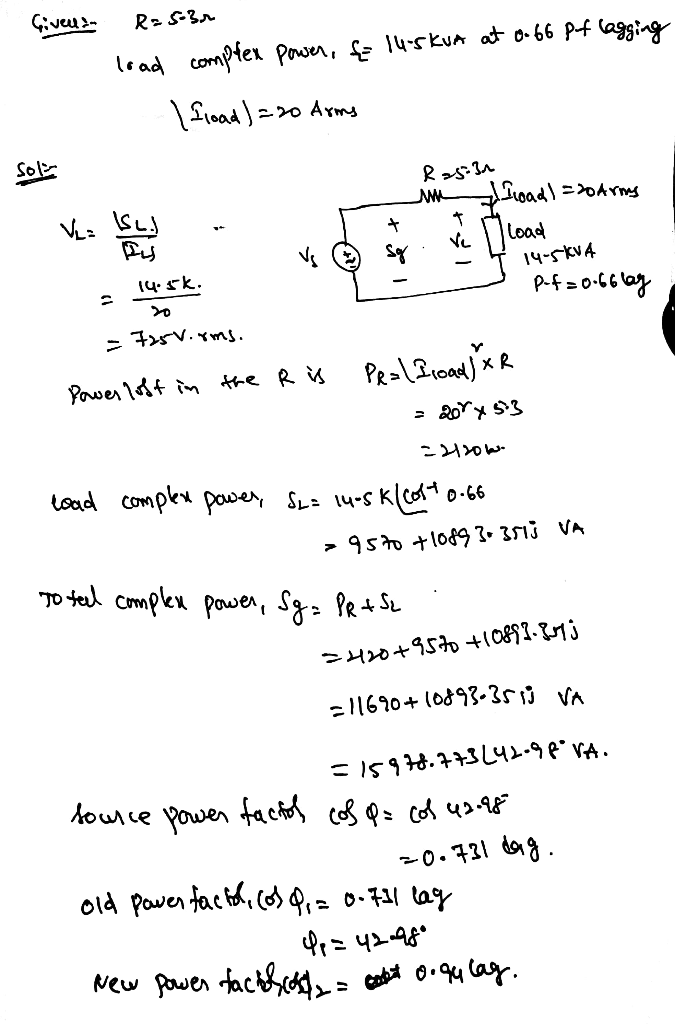 Given:- R=5.3Ω
load complex power, S= 14.5KVA at 0.66 P.f lagging
|Iload|=20 Arms
Sol:-
R=5.3Ω
|Iload|=20Arms
VL= |SL|/|IL|
Vs + Sg - + VL - load
14.5KVA
P.f=0.66 lag
= 14.5k./20
= 725V.rms.
Power lost in the R is PR=|Iload|²×R
= 20²×5.3
=2120w
load complex power, SL= 14.5K∠cos⁻¹0.66
= 9570+10893.351j VA
Total complex power, Sg= PR+SL
=2120+9570+10893.351j
=11690+10893.351j VA
=15978.773∠42.98° VA.
Source power factor cosφ= cos 42.98°
=0.731 lag.
old power factor, cosφ₁= 0.731 lag
φ₁=42.98°
New power factor, cosφ₂= 0.94 lag.